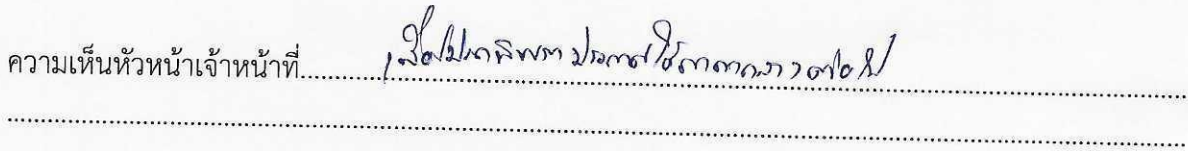 ความเห็นหัวหน้าเจ้าหน้าที่.....เพื่อโปรดพิจารณาประกาศใช้ราคากลางต่อไป